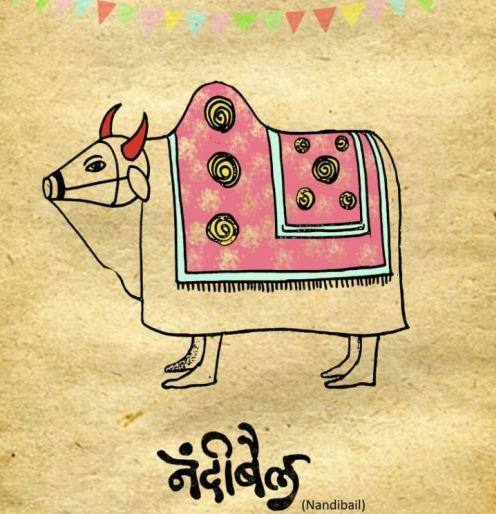 नंदीबैल
(Nandibail)